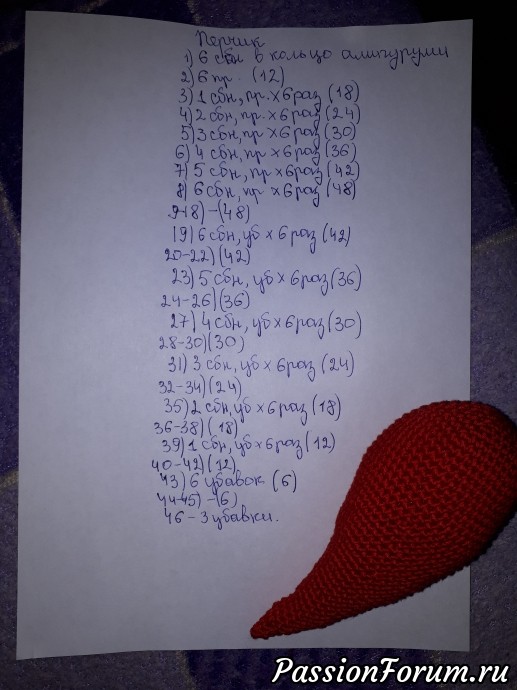 Перчик
1) 6 сбн в кольцо амигуруми
2) 6 пр. (12)
3) 1 сбн, пр. х 6 раз (18)
4) 2 сбн, пр. х 6 раз (24)
5) 3 сбн, пр х 6 раз (30)
6) 4 сбн, пр х 6 раз (36)
7) 5 сбн, пр х 6 раз (42)
8) 6 сбн, пр х 6 раз (48)
9-18) - (48)
19) 6 сбн, уб х 6 раз (42)
20-22) (42)
23) 5 сбн, уб х 6 раз (36)
24-26) (36)
27) 4 сбн, уб х 6 раз (30)
28-30) (30)
31) 3 сбн, уб х 6 раз (24)
32-34) (24)
35) 2 сбн, уб х 6 раз (18)
36-38) (18)
39) 1 сбн, уб х 6 раз (12)
40-42) (12)
43) 6 убавок (6)
44-45) - (6)
46 - 3 убавки.
PassionForum.ru